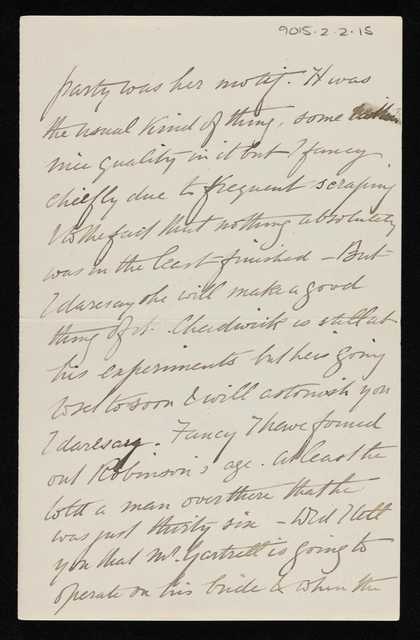 9015.2.2.15
party was her motif. It was
the usual kind of thing, some
nice quality in it but I fancy
chiefly due to frequent scraping
& to the fact that nothing absolutely
was in the least finished – But
I daresay she will make a good
thing of it. Chadwick is still at
his experiments but he is going
to set to soon & will astonish you
I daresay. Fancy I have found
out Robinson's age. At least he
told a man over there that he
was just thirty six – Did I tell
you that Mr. Gartrell is going to
operate on his bride & when the